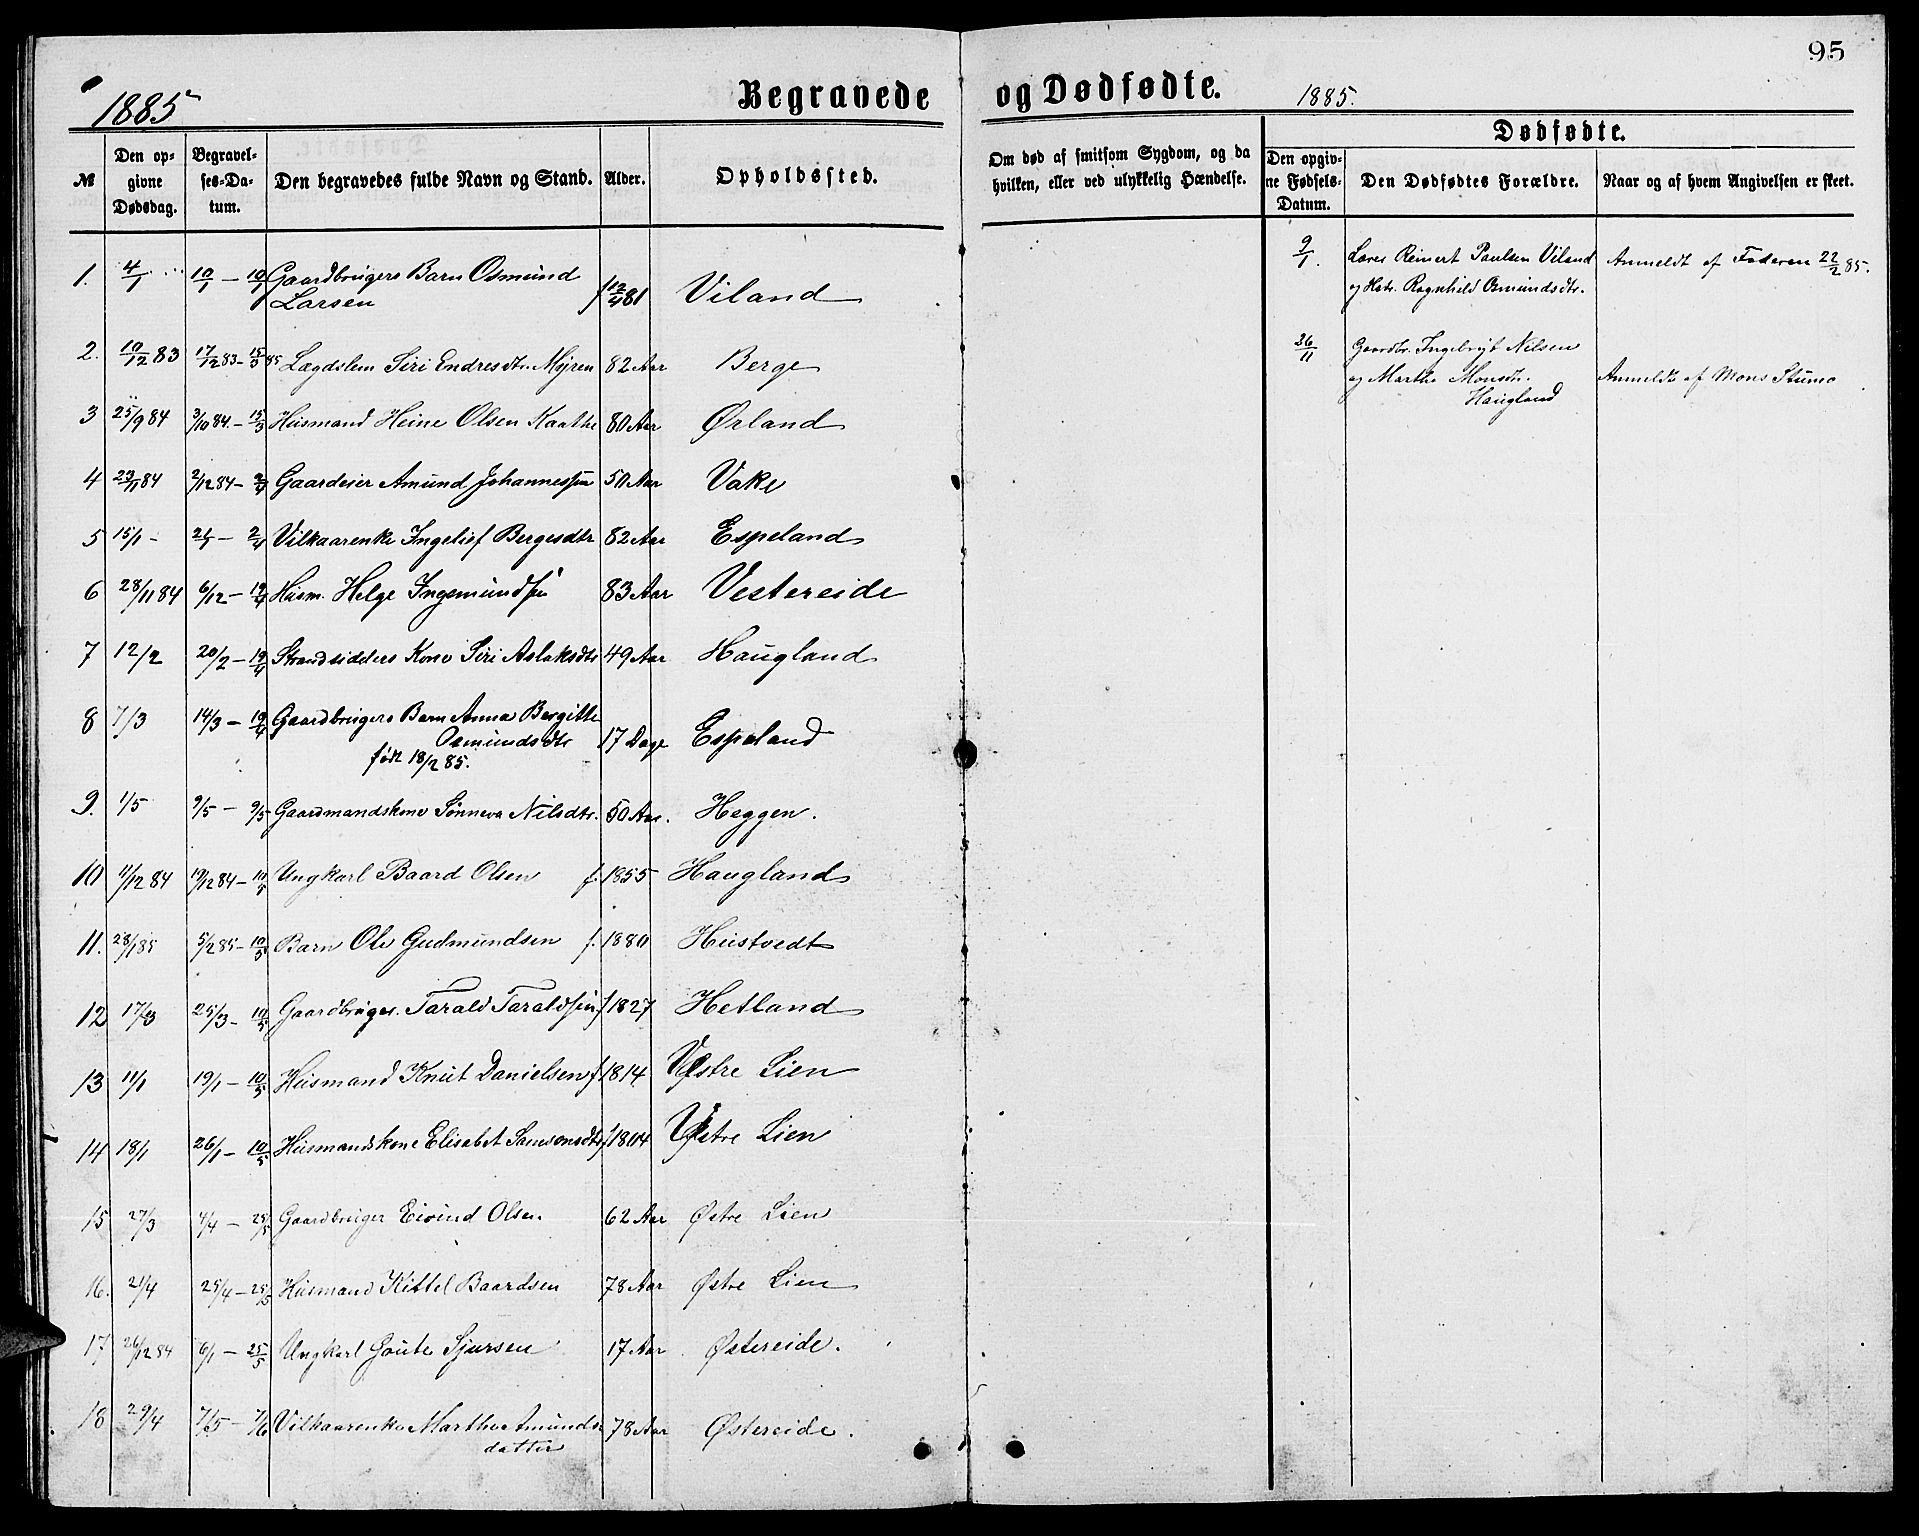 95
1885
Begravede og Dødfødte.
1885.
№
Den opgivne Dødsdag.
Begravelses-Datum.
Den begravedes fulde Navn og Stand.
Alder.
Opholdssted.
Om død af smitsom Sygdom, og da hvilken, eller ved ulykkelig Hændelse.
Dødfødte.
Den opgivne Fødsels-Datum.
Den Dødfødtes Forældre.
Naar og af hvem Angivelsen er skeet.
1. 4/1 10/1 – 10/1 Gaardbrugers Barn Osmund f 12/4 81 Viland
Larsen
2. 10/12 83 17/12 83 – 15/3 85 Lægdslem Siri Endresdtr. Myren 82 Aar Berge
3 25/9 84 3/10 84. – 15/3 Husmand Heine Olsen Kaathe 80 Aar Ørland
4 23/11 84 2/12 84 – 2/4 Gaardeier Amund Johannessen 50 Aar Vake
5 15/1 – – 2/4 Vilkaarenke Ingelief Bergesdtr 82 Aar Espeland
6 28/11 84 6/12 – 19/4 Husm. Helge Ingemundsen 83 Aar Vestereide
7 12/2 20/2 – 19/4 Strandsidders Kone Siri Aslaksdtr 49 Aar Haugland
8 7/3 14/3 – 19/4 Gaardbrugers Barn Anna Bergitte
Osmundsdtr 17 Dage Espeland
født 18/2 85.
9. 1/5 9/5 – 9/5 Gaardmandskone Sønneva Nilsdtr. 50 Aar. Heggen.
10 11/12 84 19/12 84 – 10/5 Ungkarl Baard Olsen f. 1855 Haugland
11. 28/1 85 5/2 85 – 10/5 Barn Ole Gudmundsen f. 1880 Hustvedt
12 17/3 25/3 – 10/5 Gaardbruger. Tarald Taraldsen f 1827 Hetland
13 11/1 19/1 – 10/5 Husmand Knut Danielsen f. 1814 Vestre Lien
14 18/1 26/1 – 10/5 Husmandskone Elisabet Samsonsdtr f 1804 Vestre Lien
15 27/3 4/4 – 25/5 Gaardbruger Eivind Olsen. 62 Aar Østre Lien
16. 21/4 25/4 – 25/5 Husmand Kittel Baardsen 78 Aar Østre Lien
17 26/12 84 6/1 – 25/5 Ungkarl Goute Sjursen 17 Aar Østereide.
18 29/4 7/5 – 7/6 Vilkaarenke Marthe Amunds 78 Aar Østereide.
datter
9/1. Lærer Reinert Paulsen Viland Anmeldt af Faderen 22/2 85.
og Hstr. Ragnhild Osmundsdtr.
26/11 Gaardbr. Ingebrigt Nilsen
og Marthe Monsdtr. Anmeldt af Mons Stumo
Haugland